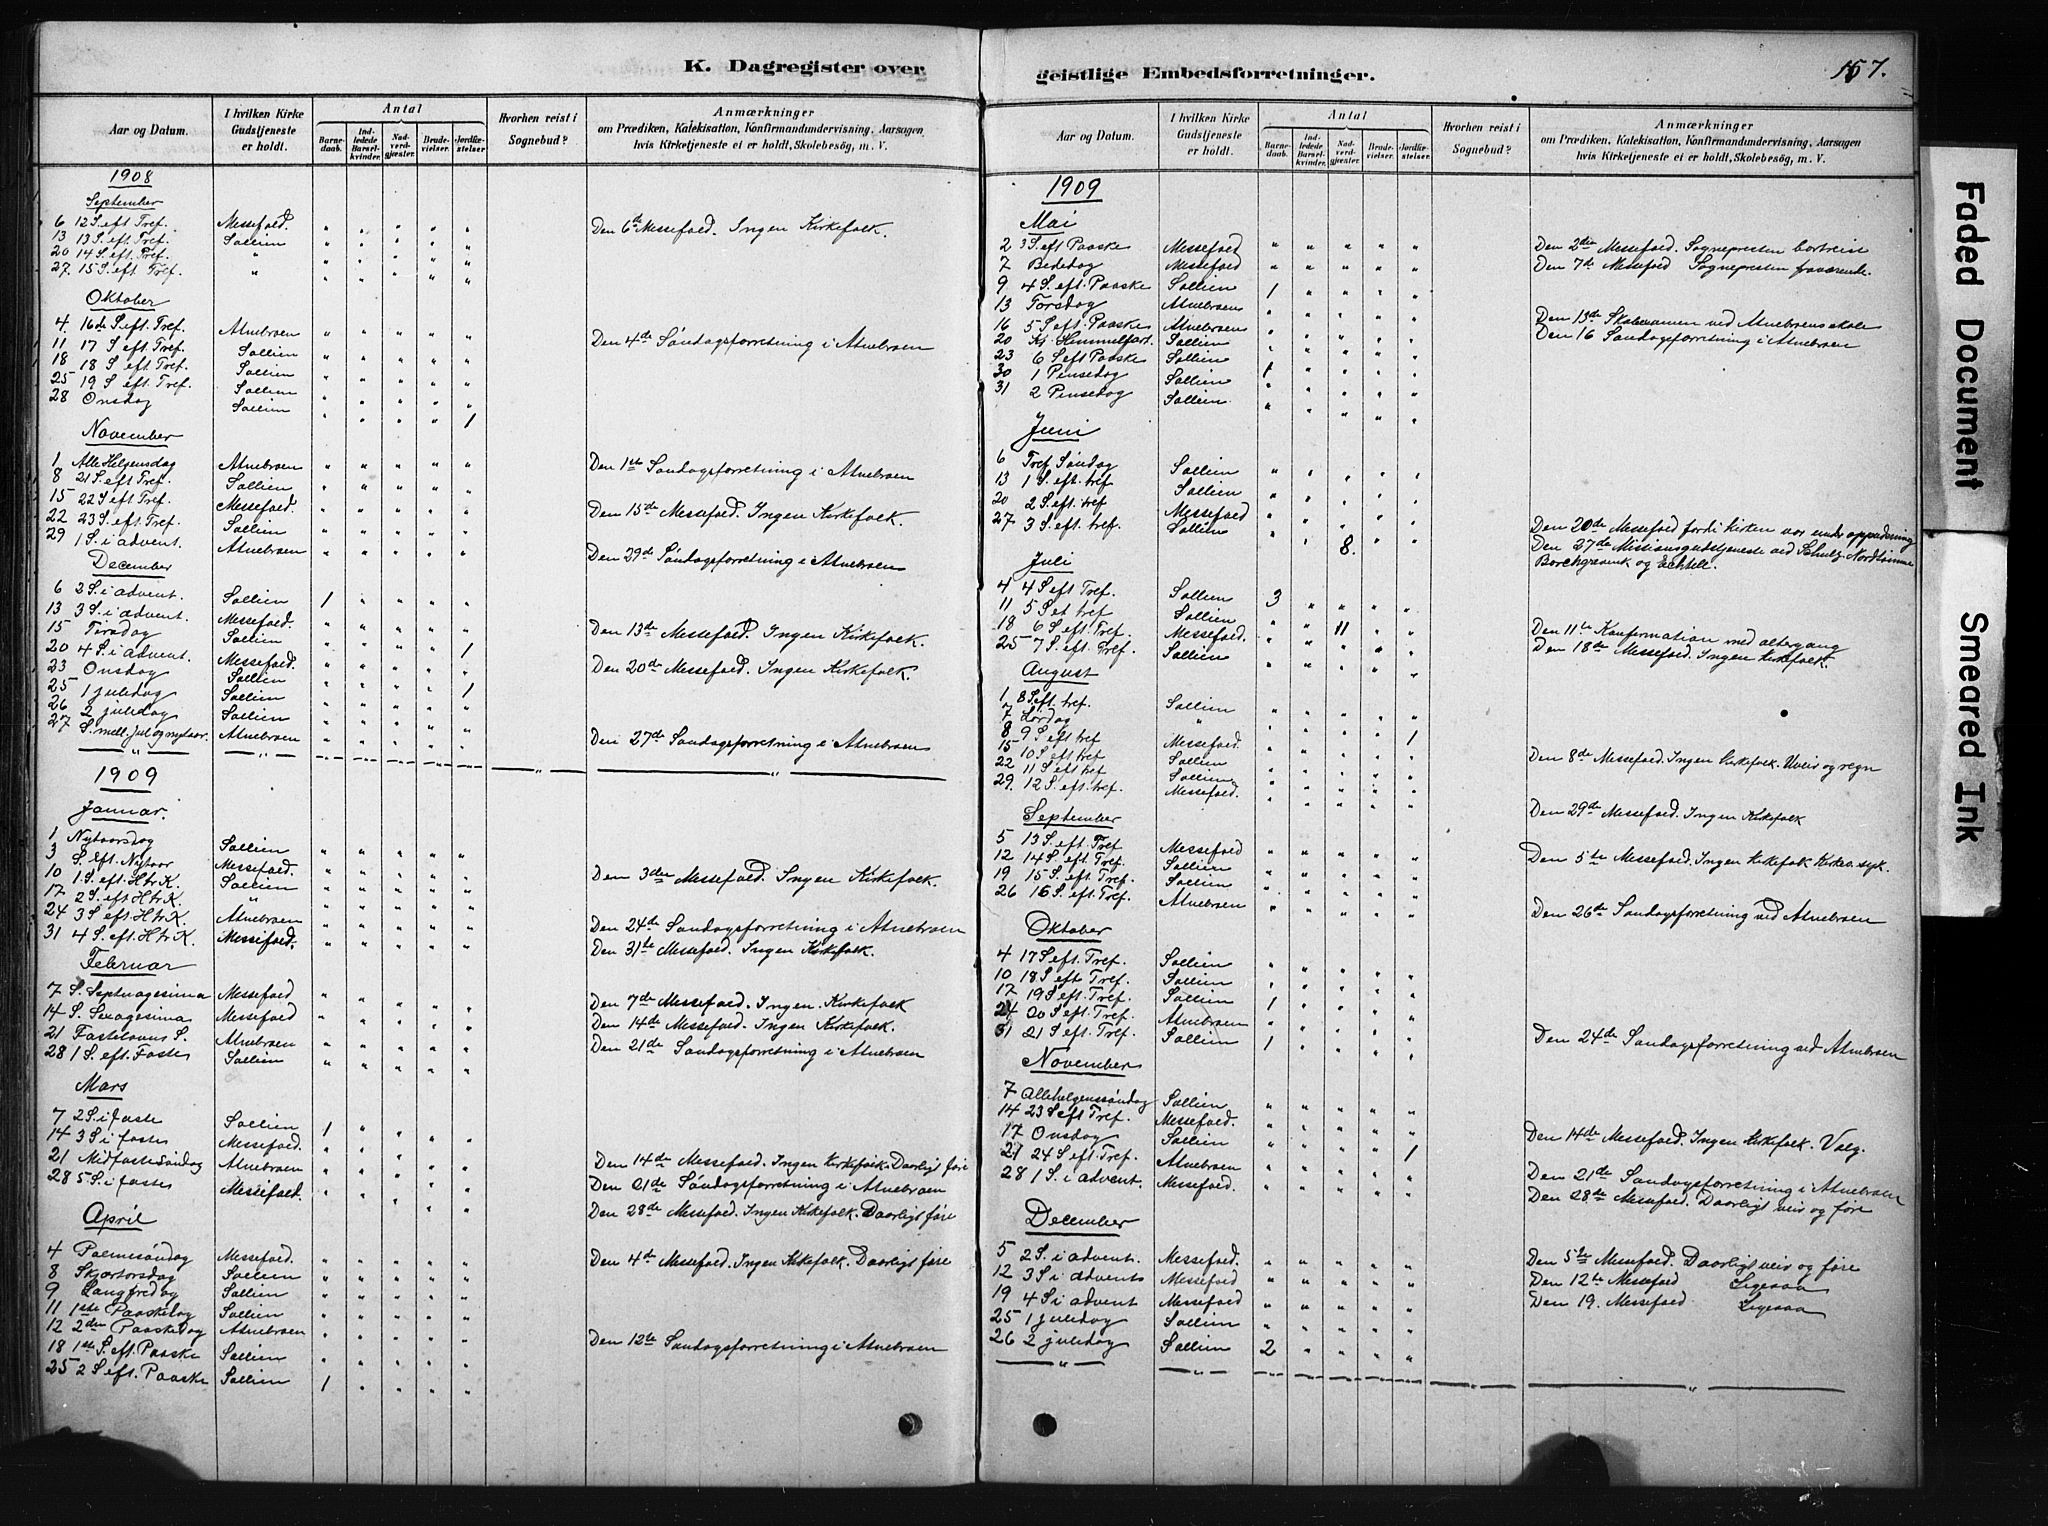 K. Dagregister over
Aar og Datum. I hvilken Kirke Gudstjeneste er holdt. Antal Barnedaab. Indledede Barselkvinder. Nadverdgjæster. Brudevielser. Jordfæstelser. Hvorhen reist i Sognebud? Anmærkninger om Prædiken, Katekisation, Konfirmandundervisning, Aarsagen, hvis Kirketjeneste ei er holdt, Skolebesög, m. V.
1908
September
6 12 S. eft Tref. Messefald. " " " " " Den 6te Messefald. Ingen Kirkefolk.
13 13 S. eft Tref. Sollien " " " " "
20 14 S. eft Tref. " " " " " "
27. 15 S. eft Tref. " " " " " "
Oktober
4. 16de S. eft. Tref. Atnebroen " " " " " Den 4de Söndagsforretning i Atnebroen
11 17 S eft. Tref. Sollien " " " " "
18 18 S eft Tref. Sollien " " " " "
25 19 S eft. Tref. Sollien " " " " "
28 Onsdag Sollien " " " " 1
November
1 Alle Helgensdag Atnebroen " " " " " Den 1ste Söndagsforretning i Atnebroen
8 21 S. eft Tref. Sollien " " " " "
15 22 S eft Tref. Messefald. " " " " " Den 15de Messefald. Ingen Kirkefolk.
22 23 S. eft Tref. Sollien " " " " "
29 1 S. i advent. Atnebroen " " " " " Den 29de Söndagsforretning i Atnebroen
December
6 2 S. i advent. Sollien 1 " " " "
13 3 S. i advent. Messefald. " " " " " Den 13de Messefald. Ingen Kirkefolk.
15 Tirsdag Sollien " " " " 1
20 4 S. i advent. Messefald. " " " " " Den 20de Messefald. Ingen Kirkefolk.
23 Onsdag Sollien " " " " 1
25 1 juledag Sollien " " " " "
26 2 juledag Sollien " " " " "
27 S. mell. jul og nytaar. Atnebroen " " " " " Den 27de Söndagsforretning i Atnebroen
1909
Januar.
1 Nytaarsdag Sollien " " " " "
3 S. eft. Nytaar Messefald. " " " " " Den 3die Messefald. Ingen Kirkefolk.
10 1 S. eft H tr K. Sollien " " " " "
17 2 S. eft H tr K. " " " " " "
24 3 S eft H tr K. Atnebroen " " " " " Den 24de Söndagsforretning i Atnebroen
31 4 S. eft. H tr K. Messefald. " " " " " Den 31te Messefald. Ingen Kirkefolk.
Februar
7 S. Septuagesima Messefald " " " " " Den 7de Messefald. Ingen Kirkefolk
14 S. Sexagesima Messefald " " " " " Den 14de Messefald. Ingen Kirkefolk.
21 Fastelavns S. Atnebroen " " " " " Den 21de Söndagsforretning i Atnebroen
28 1 S. eft. Faste Sollien " " " " "
Mars
7 2 S. i faste Sollien 1 " " " "
14 3 S i faste Messefald. " " " " " Den 14de Messefald. Ingen Kirkefolk. Daarligt före
21 Midfastesöndag Atnebroen " " " " " Den 21de Söndagsforretning i Atnebroen
28 5 S. i faste Messefald. " " " " " Den 28de Messefald. Ingen Kirkefolk. Daarligt före
April
4 Palmesöndag Messefald. " " " " " Den 4de Messefald. Ingen Kirkefolk. Daarligt före
8 Skjærtorsdag Sollien " " " " "
9 Langfredag Sollien " " " " "
11 1ste Paaskedag Sollien " " " " "
12 2den Paaskedag Atnebroen " " " " " Den 12te Söndagsforretning i Atnebroen
18 1ste S. eft. Paaske Sollien " " " " "
25 2 S eft. Paaske Sollien 1 " " " "
geistlige Embedsforretninger. 157.
Aar og Datum. I hvilken Kirke Gudstjeneste er holdt. Antal Barnedaab. Indledede Barselkvinder. Nadverdgjæster. Brudevielser. Jordfæstelser. Hvorhen reist i Sognebud? Anmærkninger om Prædiken, Katekisation, Konfirmandundervisning, Aarsagen hvis Kirketjeneste ei er holdt, Skolebesög, m. V.
1909
Mai
2 3 S. eft Paaske Messefald " " " " " Den 2den Messefald. Sognepresten bortreist
7 Bededag Messefald " " " " " Den 7de Messefald Sognepresten fraværende.
9 4 S. eft. Paaske Sollien 1 " " " "
13 Torsdag Atnebroen " " " " " Den 13de Skoleexamen ved Atnebroens skole
16 5 S eft. Paaske Atnebroen " " " " " Den 16 Söndagsforretning i Atnebroen
20 Kr. Himmelfart. Sollien " " " " "
23 6 S eft Paaske Sollien " " " " "
30 1 Pinsedag Sollien 1 " " " "
31 2 Pinsedag Sollien. " " " " "
Juni
6 Tref. Söndag Sollien " " " " "
13 1 S. eft. tref Sollien " " " " "
20 2 S eft. tref Messefald " " " " " Den 20de Messefald fordi kirken var under oppudsning
27 3 S. eft. tref. Sollien " " 8. " " Den 27de Missionsgudstjeneste ved Schulz, Nordtömme
Borchgrevink og
Juli
4 4 S eft Tref. Sollien 3 " " " "
11 5 S eft tref Sollien " " 11 " " Den 11te Konfirmation med altergang
18 6 S eft. Tref. Messefald. " " " " " Den 18de Messefald. Ingen Kirkefolk.
25 7 S. eft. Tref. Sollien " " " " "
August
1 8 S eft. tref. Sollien " " " " "
7 Lördag " " " " " 1
8 9 S eft tref Messefald. " " " " " Den 8de Messefald. Ingen Kirkefolk. Uveir og regn
15 10 S eft tref Sollien " " " " "
22 11 S eft tref Sollien " " " " "
29. 12 S eft. tref. Messefald. " " " " " Den 29de Messefald. Ingen Kirkefolk
September
5 13 S. eft. Tref Messefald " " " " " Den 5te Messefald. Ingen Kirkefolk Kirkes. syk.
12 14 S. eft. Tref. Sollien " " " " "
19 15 S. eft. Tref. Sollien " " " " "
26 16 S. eft. Tref. Atnebroen " " " " " Den 26de Söndagsforretning ved Atnebroen
Oktober
4 17 S eft. Tref. Sollien " " " " "
10 18 S eft Tref. Sollien " " " " "
17 19 S eft. Tref. Sollien 1 " " " "
24 20 S eft. Tref. Atnebroen " " " " " Den 24de Söndagsforretning ved Atnebroen
31 21 S eft. Tref. Sollien 1 " " " "
November
7 Allehelgenssöndag Sollien " " " " "
14 23 S eft Tref. Messefald. " " " " " Den 14de Messefald. Ingen Kirkefolk. Valg.
17 Onsdag Sollien " " " " 1
21 24 S eft Tref. Atnebroen " " " " " Den 21de Söndagsforretning i Atnebroen
28 1 S. i advent. Messefald. " " " " " Den 28de Messefald. Daarligt veir og före
December
5 2 S. i advent. Messefald. " " " " " Den 5te Messefald. Daarligt veir og före
12 3 S i advents Messefald " " " " " Den 12te Messefald Ligesaa
19 4 S i advent Messefald " " " " " Den 19. Messefald Ligesaa
25 1 juledag Sollien " " " " "
26 2 juledag Sollien 2 " " " "
Faded Document
Smeared Ink